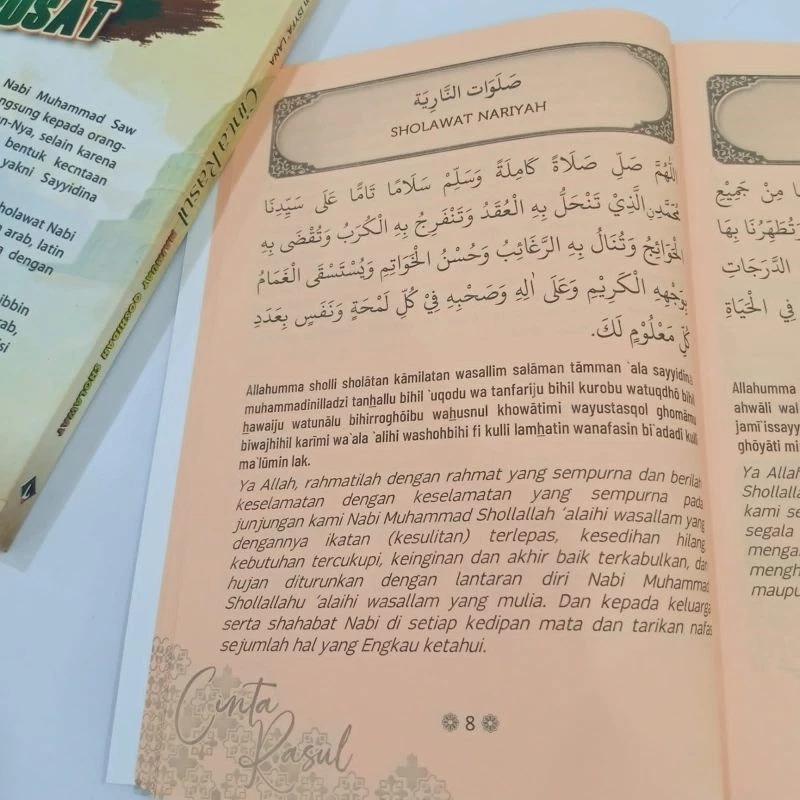 USAT
Nabi Muhammad Saw
ngsung kepada orang-
n-Nya, selain karena
bentuk kecntaan
yakni Sayyidina
holawat Nabi
arab, latin
dengan
ibbin
rab,
isi
LANA
Cinta Rasul
SHOLAWAT
صَلَوَات النَّارِيَة
SHOLAWAT NARIYAH
اللّٰهُمَّ صَلِّ صَلَاةً كَامِلَةً وَسَلِّمْ سَلَامًا تَامًّا عَلَى سَيِّدِنَا
مُحَمَّدِنِ الَّذِيْ تَنْحَلُّ بِهِ الْعُقَدُ وَتَنْفَرِجُ بِهِ الْكُرَبُ وَتُقْضَى بِهِ
الْحَوَائِجُ وَتُنَالُ بِهِ الرَّغَائِبُ وَحُسْنُ الْخَوَاتِمِ وَيُسْتَسْقَى الْغَمَامُ
بِوَجْهِهِ الْكَرِيْمِ وَعَلَى اٰلِهِ وَصَحْبِهِ فِيْ كُلِّ لَمْحَةٍ وَنَفَسٍ بِعَدَدِ
كُلِّ مَعْلُوْمٍ لَكَ.
Allahumma sholli sholātan kāmilatan wasallim salāman tāmman `ala sayyidina
muhammadinilladzi tanhallu bihil `uqodu wa tanfariju bihil kurobu watuqdhō bihil
hawaiju watunālu bihirroghōibu wahusnul khowātimi wayustasqol ghomāmu
biwajhihil karīmi wa`ala `alihi washohbihi fi kulli lamhatin wanafasin bi`adadi kulli
ma`lūmin lak.
Ya Allah, rahmatilah dengan rahmat yang sempurna dan berilah
keselamatan dengan keselamatan yang sempurna pada
junjungan kami Nabi Muhammad Shollallah ‘alaihi wasallam yang
dengannya ikatan (kesulitan) terlepas, kesedihan hilang,
kebutuhan tercukupi, keinginan dan akhir baik terkabulkan, dan
hujan diturunkan dengan lantaran diri Nabi Muhammad
Shollallahu ‘alaihi wasallam yang mulia. Dan kepada keluarga
serta shahabat Nabi di setiap kedipan mata dan tarikan nafas
sejumlah hal yang Engkau ketahui.
Cinta
Rasul
8
مِنْ جَمِيْعِ
وَتُطَهِّرُنَا بِهَا
الدَّرَجَاتِ
فِي الْحَيَاةِ
Allahumma
ahwāli wal
jamī`issayy
ghōyāti mi
Ya Allah
Shollalla
kami se
segala
mengan
mengh
maupu